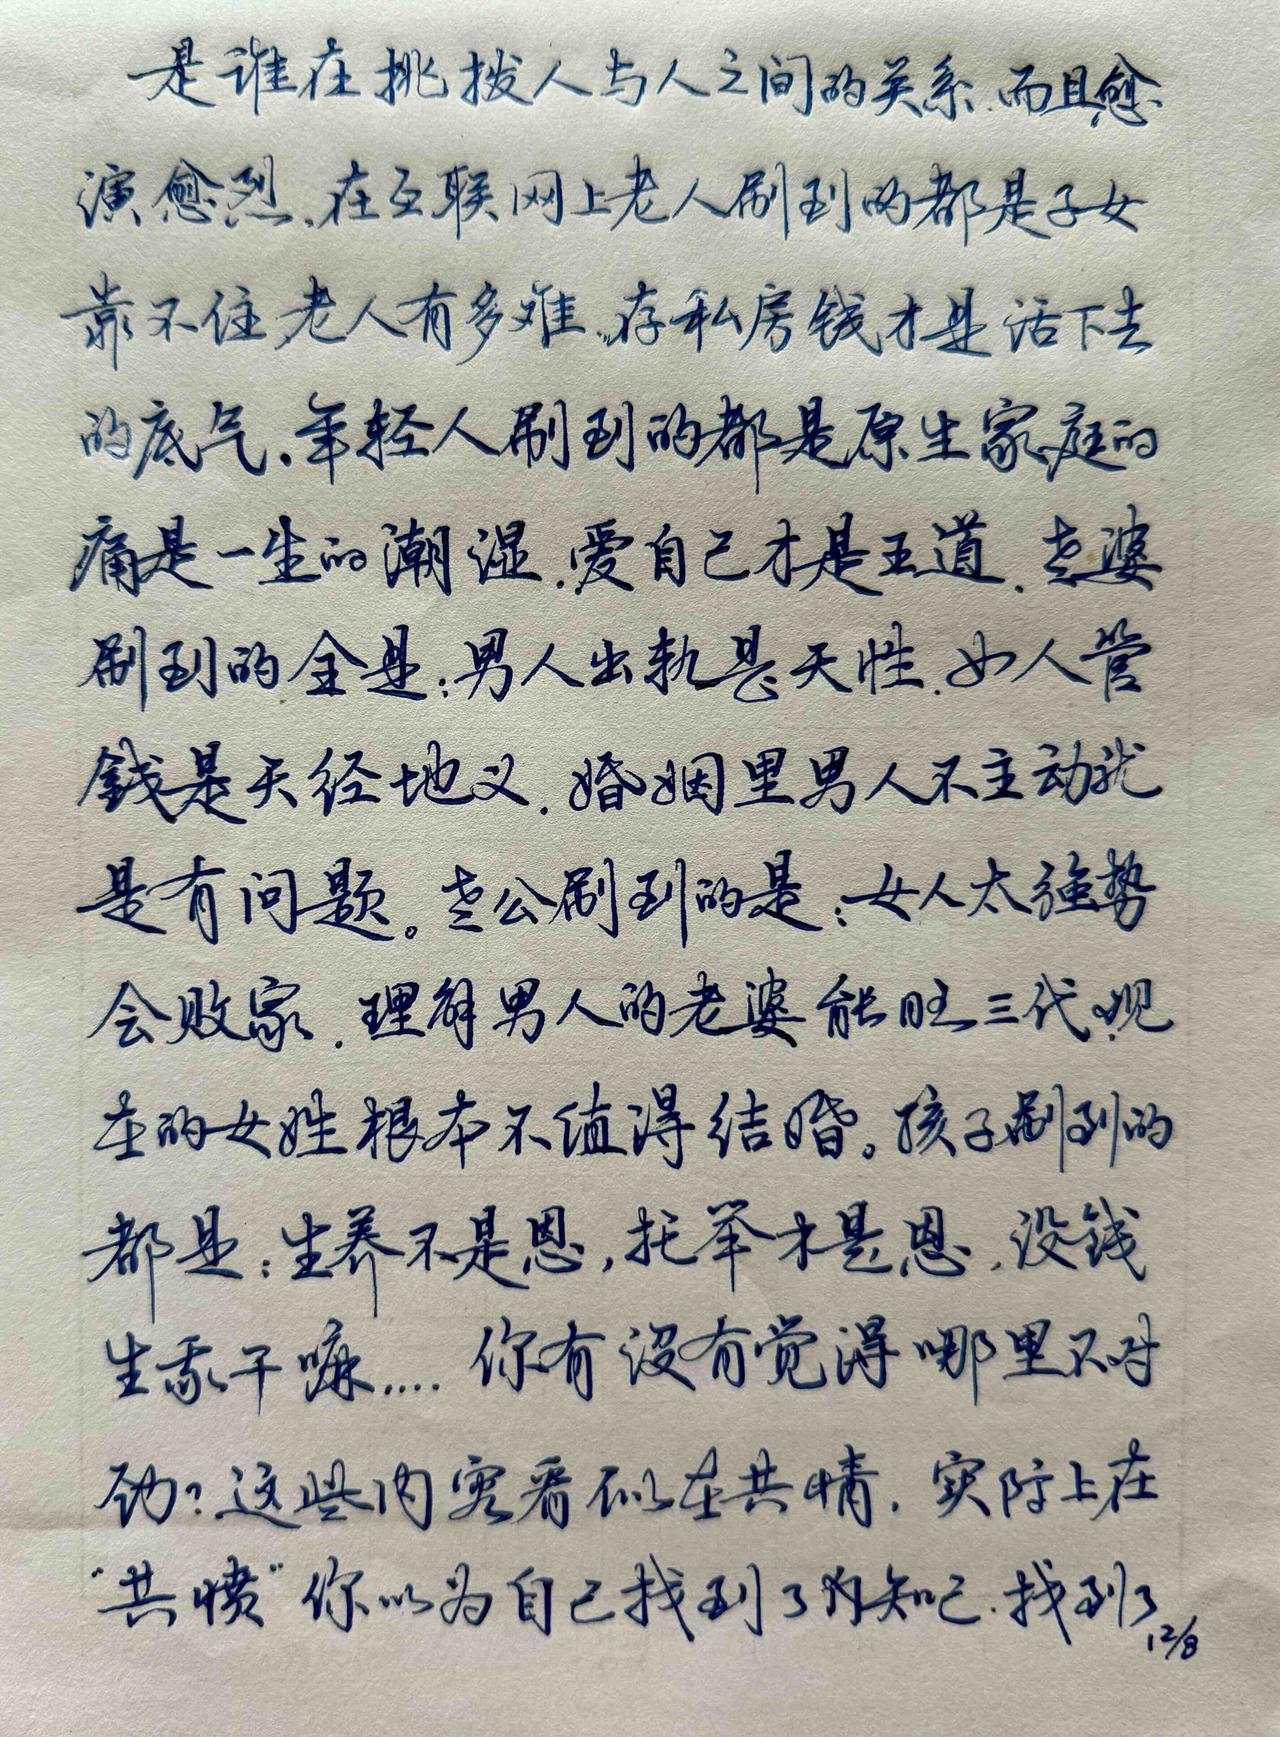 是谁在挑拨人与人之间的关系、而且愈
演愈烈、在互联网上老人刷到的都是子女
靠不住 老人有多难、存私房钱才是活下去
的底气。年轻人刷到的都是原生家庭的
痛是一生的潮湿、爱自己才是王道、老婆
刷到的全是:男人出轨是天性、女人管
錢是天经地义、婚姻里男人不主动就
是有问题。老公刷到的是:女人太強势
会败家、理解男人的老婆能旺三代、现
在的女姓根本不值得结婚。孩子刷到的
都是:生养不是恩,托举才是恩、没钱
生孩子嘛.... 你有没有觉得哪里不对
劲?这些内容看似在共情、实际上在
“共愤”你以为自己找到了知己、找到了
12/8